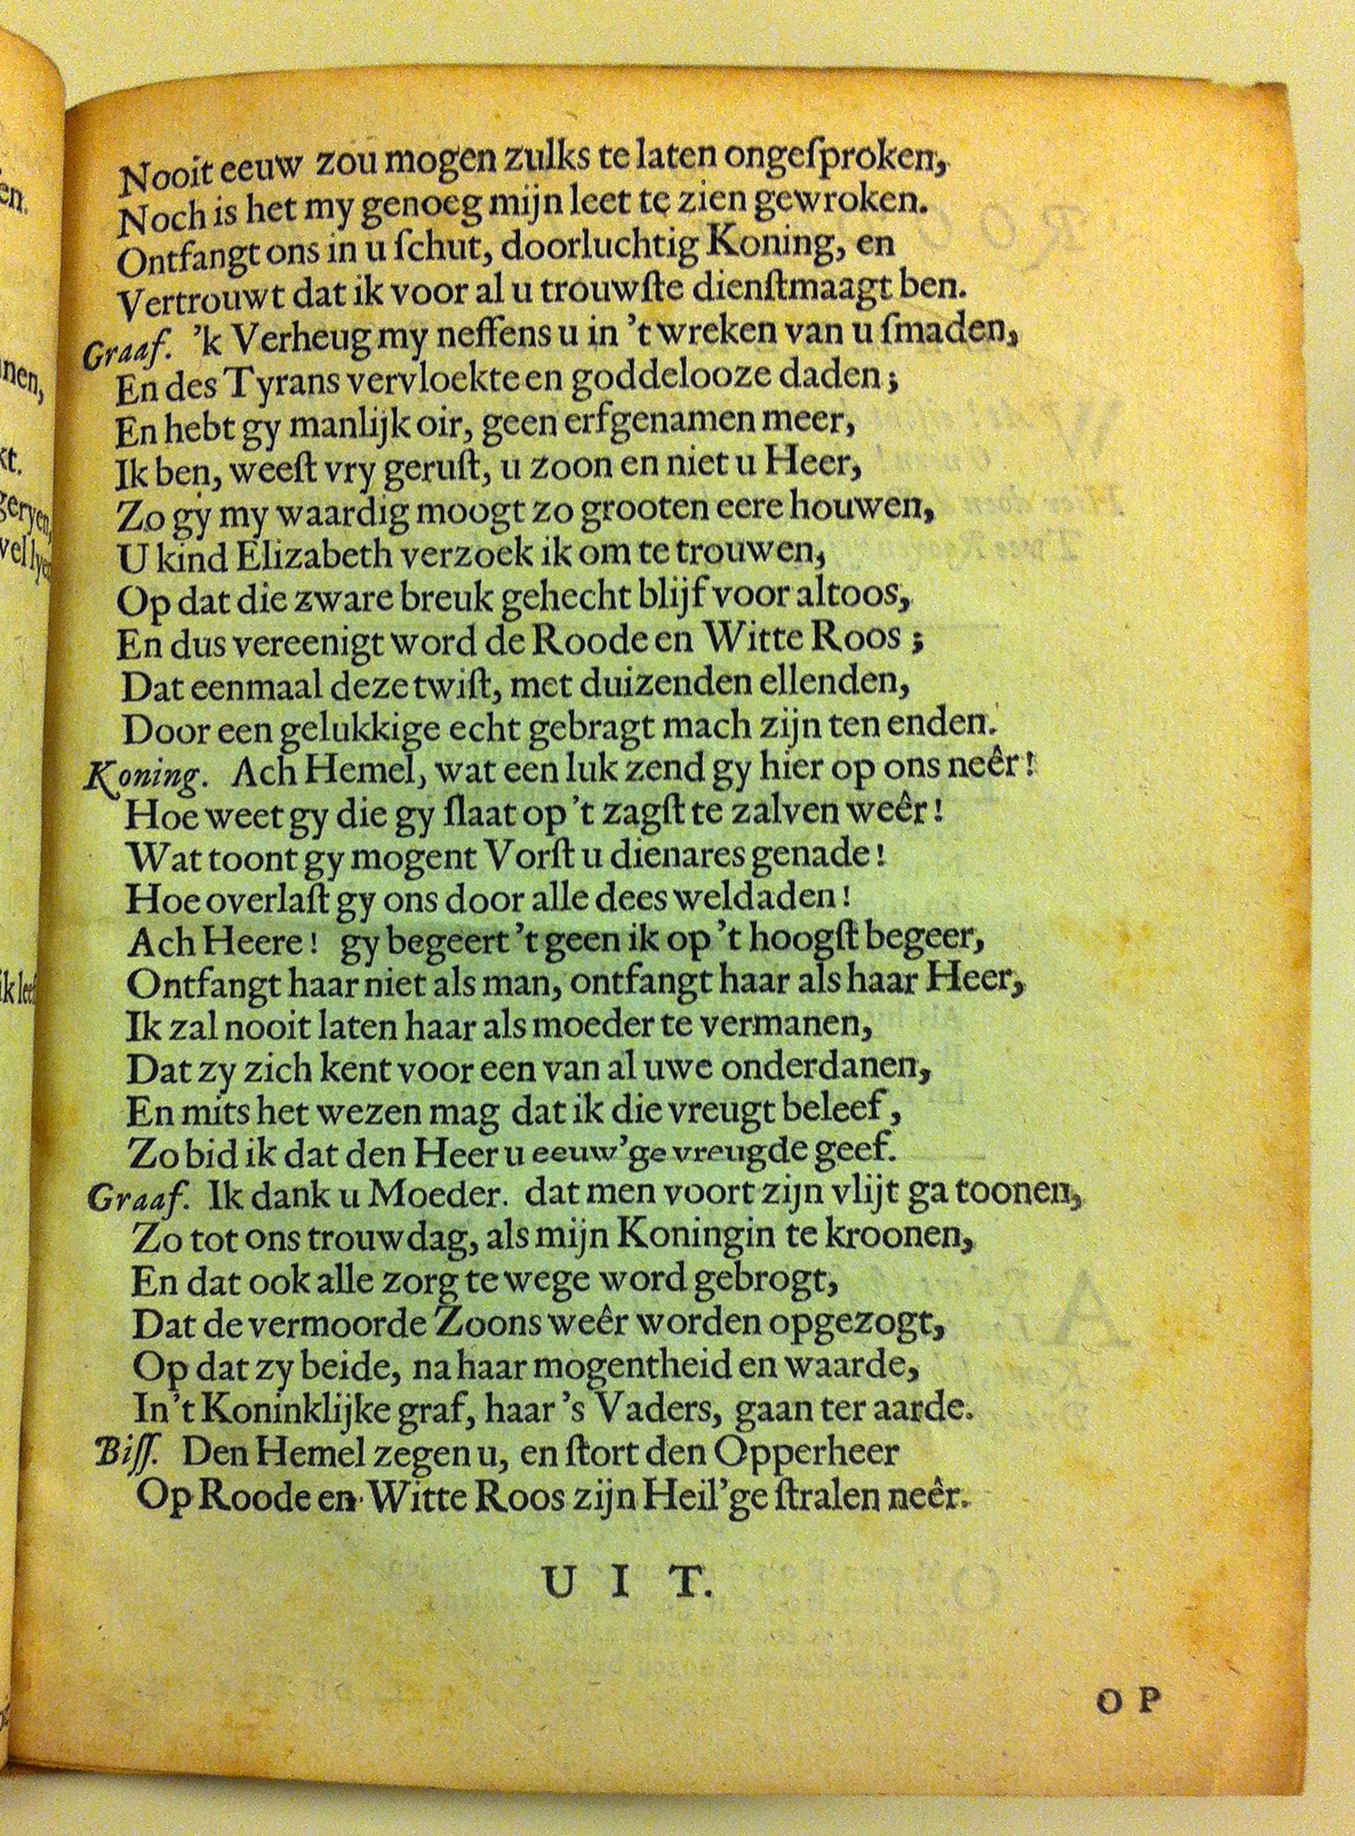 Nooit eeuw zou mogen zulks te laten ongeſproken,
Noch is het my genoeg mijn leet te zien gewroken.
Ontfangt ons in u ſchut, doorluchtig Koning, en
Vertrouwt dat ik voor al u trouwſte dienſtmaagt ben.
Graaf. 'k Verheug my neffens u in 't wreken van u ſmaden,
En des Tyrans vervloekte en goddelooze daden;
En hebt gy manlijk oir, geen erfgenamen meer,
Ik ben, weeſt vry geruſt, u zoon en niet u Heer,
Zo gy my waardig moogt zo grooten eere houwen,
U kind Elizabeth verzoek ik om te trouwen,
Op dat die zware breuk gehecht blijf voor altoos,
En dus vereenigt word de Roode en Witte Roos;
Dat eenmaal deze twiſt, met duizenden ellenden,
Door een gelukkige echt gebragt mach zijn ten enden.
Koning. Ach Hemel, wat een luk zend gy hier op ons neêr!
Hoe weet gy die gy ſlaat op 't zagſt te zalven weêr!
Wat toont gy mogent Vorſt u dienares genade!
Hoe overlaſt gy ons door alle dees weldaden!
Ach Heere! gy begeert 't geen ik op 't hoogſt begeer,
Ontfangt haar niet als man, ontfangt haar als haar Heer,
Ik zal nooit laten haar als moeder te vermanen,
Dat zy zich kent voor een van al uwe onderdanen,
En mits het wezen mag dat ik die vreugt beleef,
Zo bid ik dat den Heer u eeuw'ge vreugde geef.
Graaf. Ik dank u Moeder. dat men voort zijn vlijt ga toonen,
Zo tot ons trouwdag, als mijn Koningin te kroonen,
En dat ook alle zorg te wege word gebrogt,
Dat de vermoorde Zoons weêr worden opgezogt,
Op dat zy beide, na haar mogentheid en waarde,
In 't Koninklijke graf, haar 's Vaders, gaan ter aarde.
Biſſ. Den Hemel zegen u, en ſtort den Opperheer
Op Roode en Witte Roos zijn Heil'ge ſtralen neêr.
U I T.
O P